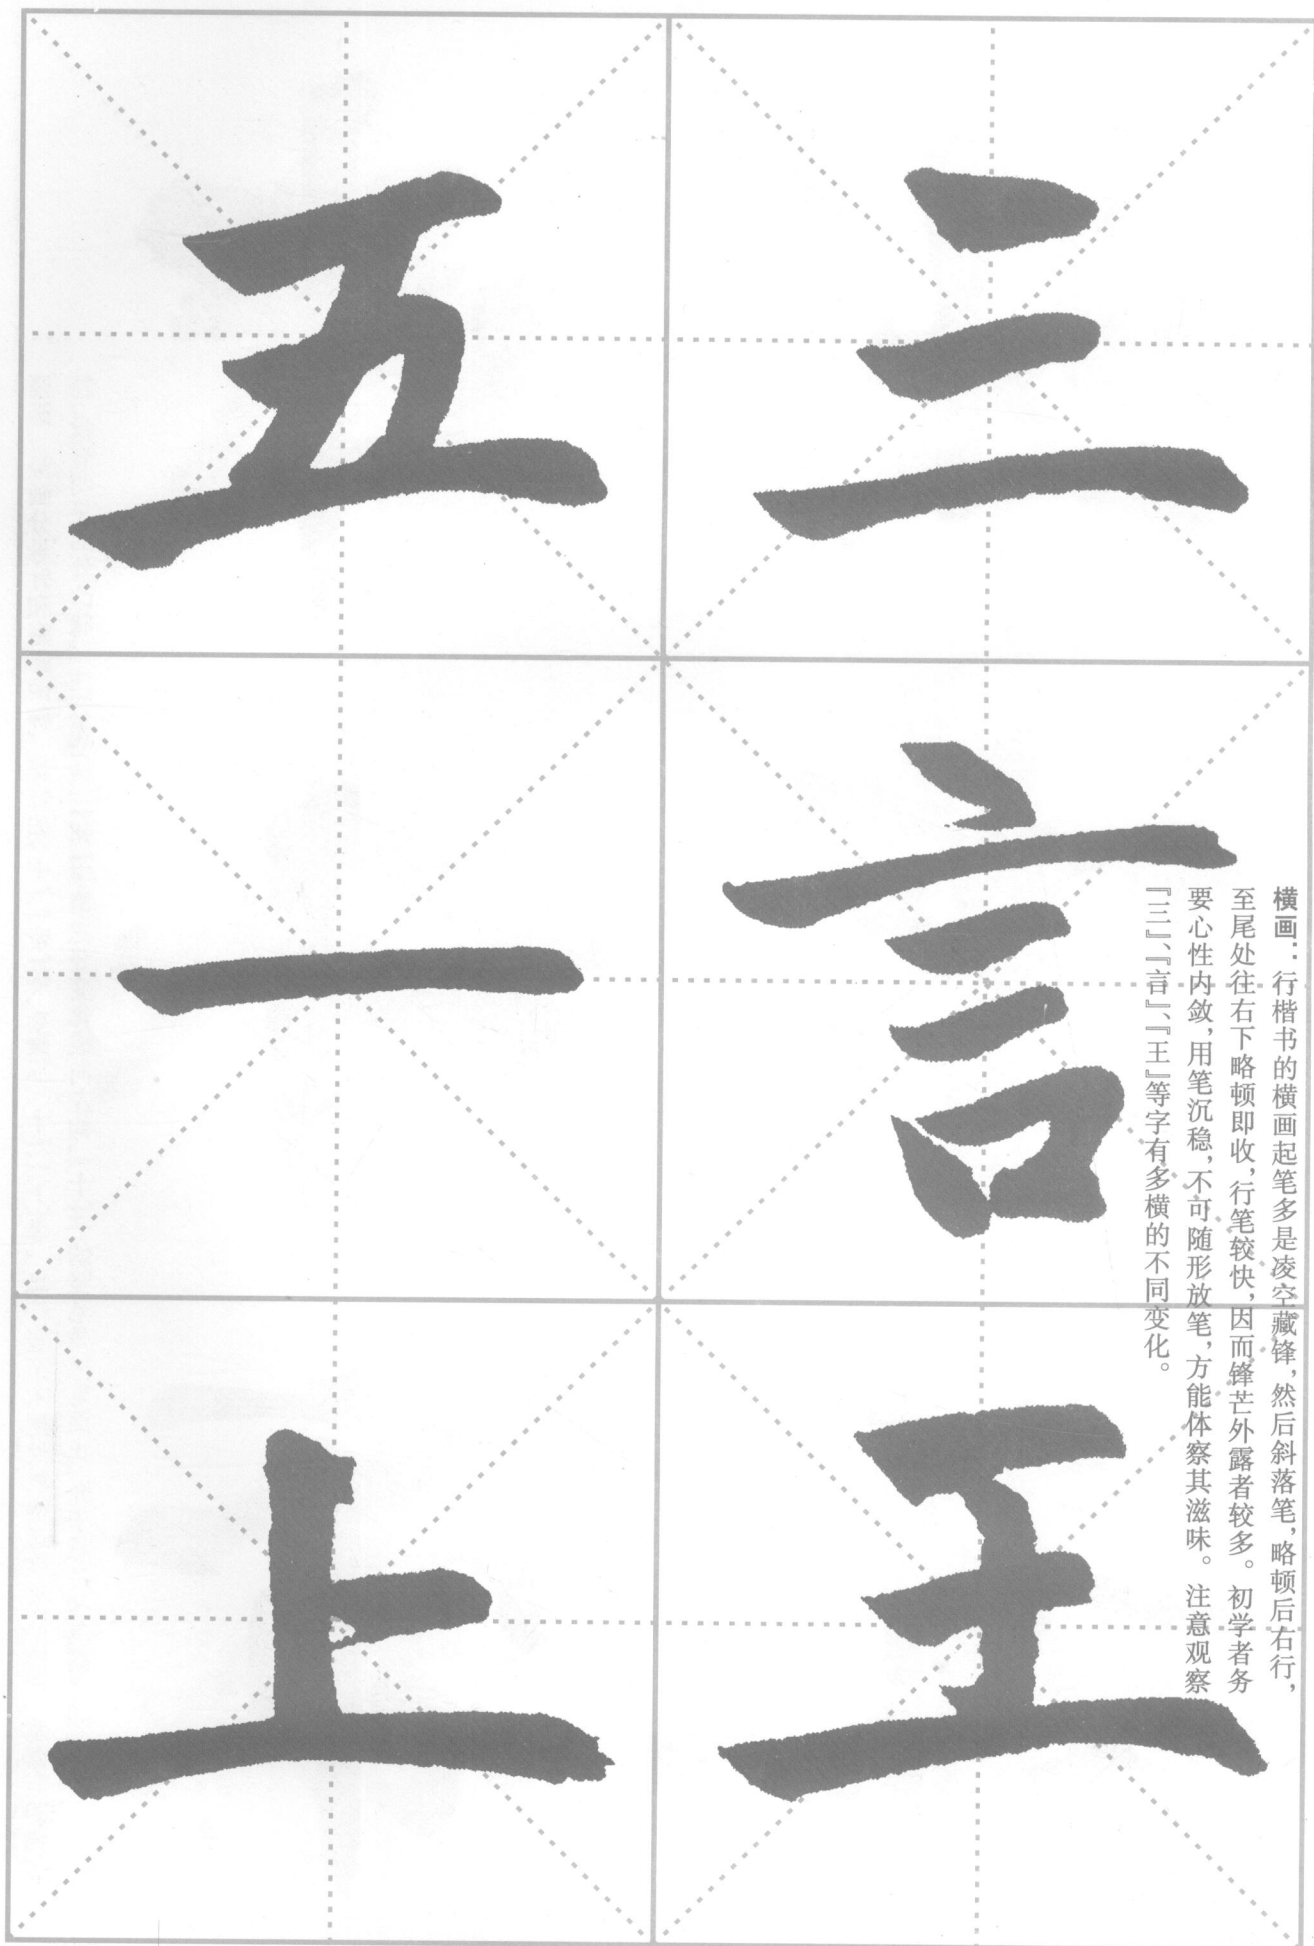 横画：行楷书的横画起笔多是凌空藏锋，然后斜落笔，略顿后右行，
至尾处往右下略顿即收，行笔较快，因而锋芒外露者较多。初学者务
要心性内敛，用笔沉稳，不可随形放笔，方能体察其滋味。注意观察
『三』、『言』、『王』等字有多横的不同变化。
三
言
王
五
一
上